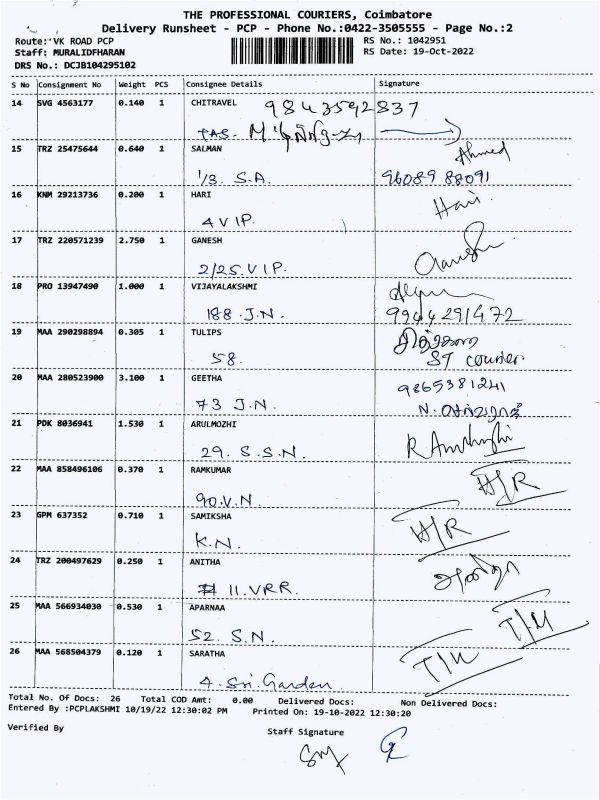 THE PROFESSIONAL COURIERS, Coimbatore
Delivery Runsheet - PCP - Phone No.:0422-3505555 - Page No.:2
Route: VK ROAD PCP
Staff: MURALIDFHARAN
DRS No.: DCJB104295102
RS No.: 1042951
RS Date: 19-Oct-2022
S No Consignment No Weight PCS Consignee Details Signature
14 SVG 4563177 0.140 1 CHITRAVEL 9843592837
15 TRZ 25475644 0.640 1 SALMAN Ahmed
1/3. S.A. 96089 88091
16 KNM 29213736 0.200 1 HARI Hari
4 VIP.
17 TRZ 220571239 2.750 1 GANESH
2/25.VIP.
18 PRO 13947490 1.000 1 VIJAYALAKSHMI
188.J.N. 9944291472
19 MAA 290298894 0.305 1 TULIPS
58. ST courier
20 MAA 280523900 3.100 1 GEETHA 9865381241
73 J.N. N.
21 PDK 8036941 1.530 1 ARULMOZHI
29. S.S.N.
22 MAA 858496106 0.370 1 RAMKUMAR
90.V.N.
23 GPM 637352 0.710 1 SAMIKSHA
K.N.
24 TRZ 200497629 0.250 1 ANITHA
11.VRR.
25 MAA 566934030 0.530 1 APARNAA
52. S.N.
26 MAA 568504379 0.120 1 SARATHA
4. Sri. Garden
Total No. Of Docs: 26 Total COD Amt: 0.00 Delivered Docs: Non Delivered Docs:
Entered By :PCPLAKSHMI 10/19/22 12:30:02 PM Printed On: 19-10-2022 12:30:20
Verified By
Staff Signature